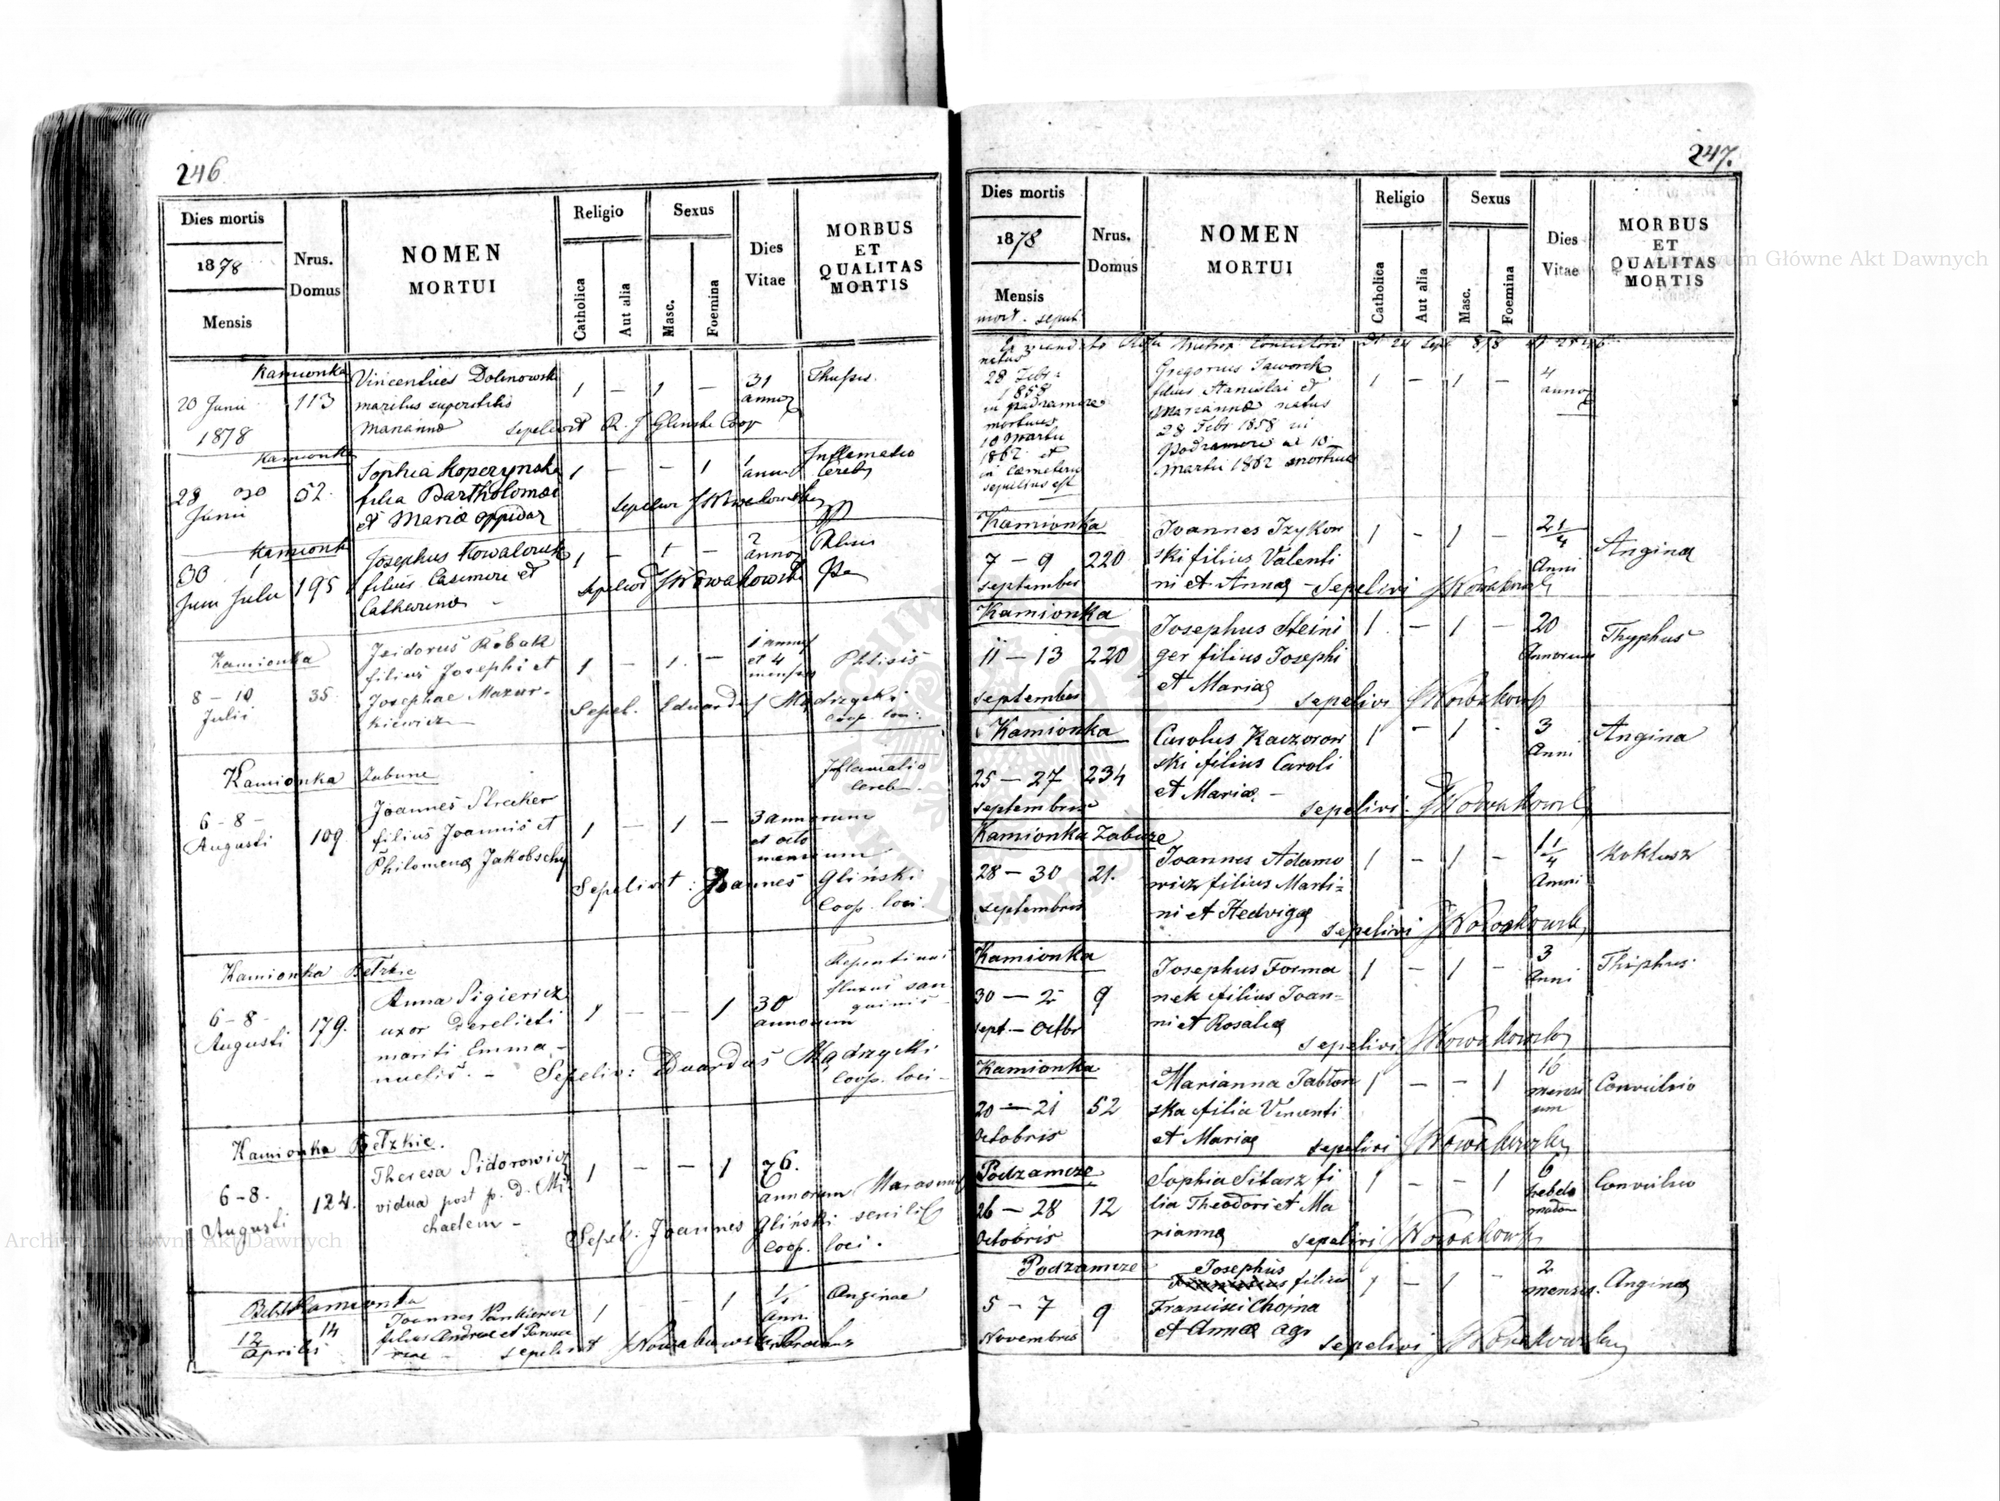 246
Dies mortis
1878
Mensis
Nrus.
Domus
NOMEN
MORTUI
Religio
Catholica
Aut alia
Sexus
Masc.
Foemina
Dies
Vitae
MORBUS
ET
QUALITAS
MORTIS
Kamionka
20 Junii
1878
113
Vincentius Dolinowski
maritus superstitis
Mariannae
1 — 1 —
31
annor
sepelivit R. J Glinski Coop
Kamionka
28 30
Junii
52.
Sophia Kopczynska
filia Bartholomaei
et Mariae oppidar
1 — — 1
1
anni
Inflamatio
Cereb
sepelivi J Nowakowski
Kamionk
30 1
Juni Julii
195
Josephus Kowalczuk
filius Casimiri et
Catharinae
1 — 1 —
2
annor
Phtisis
sepelivit J Nowakowski
Kamionka
8 — 10
Julii
35.
Isidorus Robak
filius Josephi et
Josephae Mazur-
kiewicz
1 — 1. —
1 annus
et 4
menses
Phtisis
Sepel. Eduardus Mądrzycki
coop. loci.
Kamionka Zabuze
6 - 8 -
Augusti
109.
Joannes Strecker
filius Joannis et
Philomenae Jakobschy
1 — 1 —
3 annorum
et octo
mensium
Inflamatio
Cereb.
Sepelivit: Joannes Gliński
Coop. loci.
Kamionka Bełzkie
6 - 8 -
Augusti
179.
Anna Sigiericz
uxor derelicti
mariti Emma-
nuelis. -
1 — — 1
30
annorum
Repentinus
fluxus san
guinis -
Sepeliv: Eduardus Mądrzycki
Coop. loci -
Kamionka Bełzkie.
6 - 8.
Augusti
124.
Theresa Sidorowicz
vidua post p. d. Mi
chaelem -
1 — — 1
76.
annorum
Marasmus
senilis
Sepel: Joannes Gliński
Coop. loci.
Kamionka
12
Aprilis
14
Joannes Pankiewicz
filius Andreae et
1 — — 1
ann.
Anginae
sepelivit J Nowakowski Parochus
247.
Dies mortis
1878
Mensis
mort. sepult.
Nrus.
Domus
NOMEN
MORTUI
Religio
Catholica
Aut alia
Sexus
Masc.
Foemina
Dies
Vitae
MORBUS
ET
QUALITAS
MORTIS
natus
28 Febr
1858
in Podzamcze
mortuus
10 Martii
1862 et
in Cemeterio
sepultus est
Gregorius Jaworski
filius Stanislai et
Mariannae natus
28 Febr 1858 in
Podzamcze ac 10
Martii 1862 mortuus
1 — 1 —
4
annor
Kamionka
7 — 9
septembris
220
Joannes Izykow
ski filius Valenti
ni et Annae - Sepelivi J Nowakowski
1 - 1 -
2 1/4
Anni
Angina
Kamionka
11 — 13
septembris
220
Josephus Steini
ger filius Josephi
et Mariae
1 — 1 —
20
Annorum
Thyphus
sepelivi J Nowakowski
Kamionka
25 — 27
septembris
234
Carolus Kaczorow
ski filius Caroli
et Mariae -
1 - 1 -
3
Anni
Angina
sepelivi J Nowakowski
Kamionka Zabuze
28 — 30
septembris
21.
Joannes Adamo
wicz filius Marti=
ni et Hedvigae
1 — 1 —
1 1/4
Anni
Koklusz
sepelivi J Nowakowski
Kamionka
30 — 2
sept — octbr
9
Josephus Forma
nek filius Joan=
ni et Rosaliae
1 — 1 —
3
Anni
Thiphus
sepelivi J Nowakowski
Kamionka
20 — 21
Octobris
52
Marianna Jabłon
ska filia Vincenti
et Mariae
1 — — 1
16
mensi
um
Convulsio
sepelivi J Nowakowski
Podzamcze
26 — 28
Octobris
12
Sophia Sitarz fi
lia Theodori et Ma
rianna
1 — — 1
6
hebdo
madum
Convulsio
sepelivi J Nowakowski
Podzamcze
5 — 7
Novembris
9
Josephus
filius
Francisci Chojna
et Annae agr
1 — 1 -
2
mensis.
Angina
sepelivi J Nowakowski
Archiwum Główne Akt Dawnych
Archiwum Główne Akt Dawnych